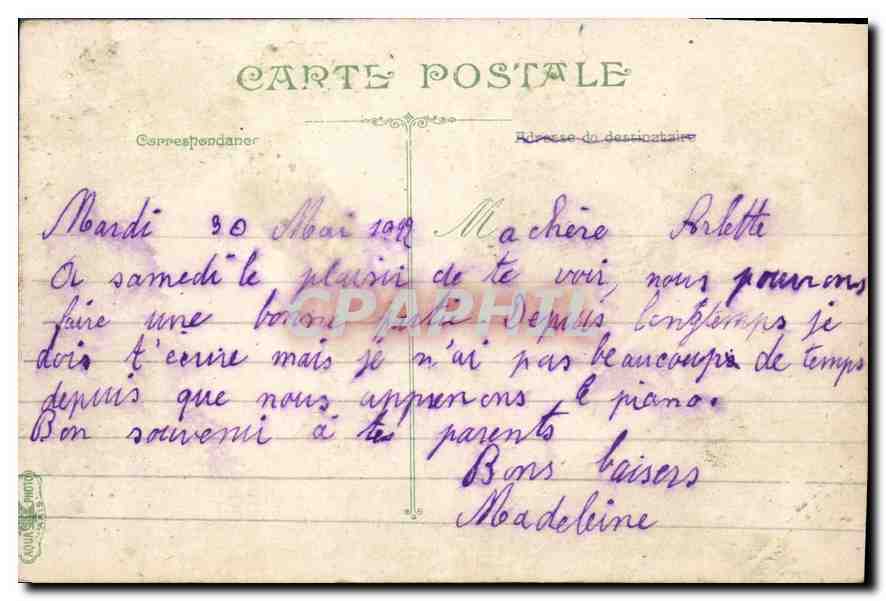 CARTE POSTALE
Correspondance
Adresse du destinataire
Mardi 30 Mai 1922 Ma chère Arlette
A samedi le plaisir de te voir, nous pouvons
faire une bonne Depuis longtemps je
dois t'écrire mais je n'ai pas beaucoup de temps
depuis que nous apprenons le piano.
Bon souvenir à tes parents
Bons baisers
Madeleine
CPAPHIL
AQUA PHOTO